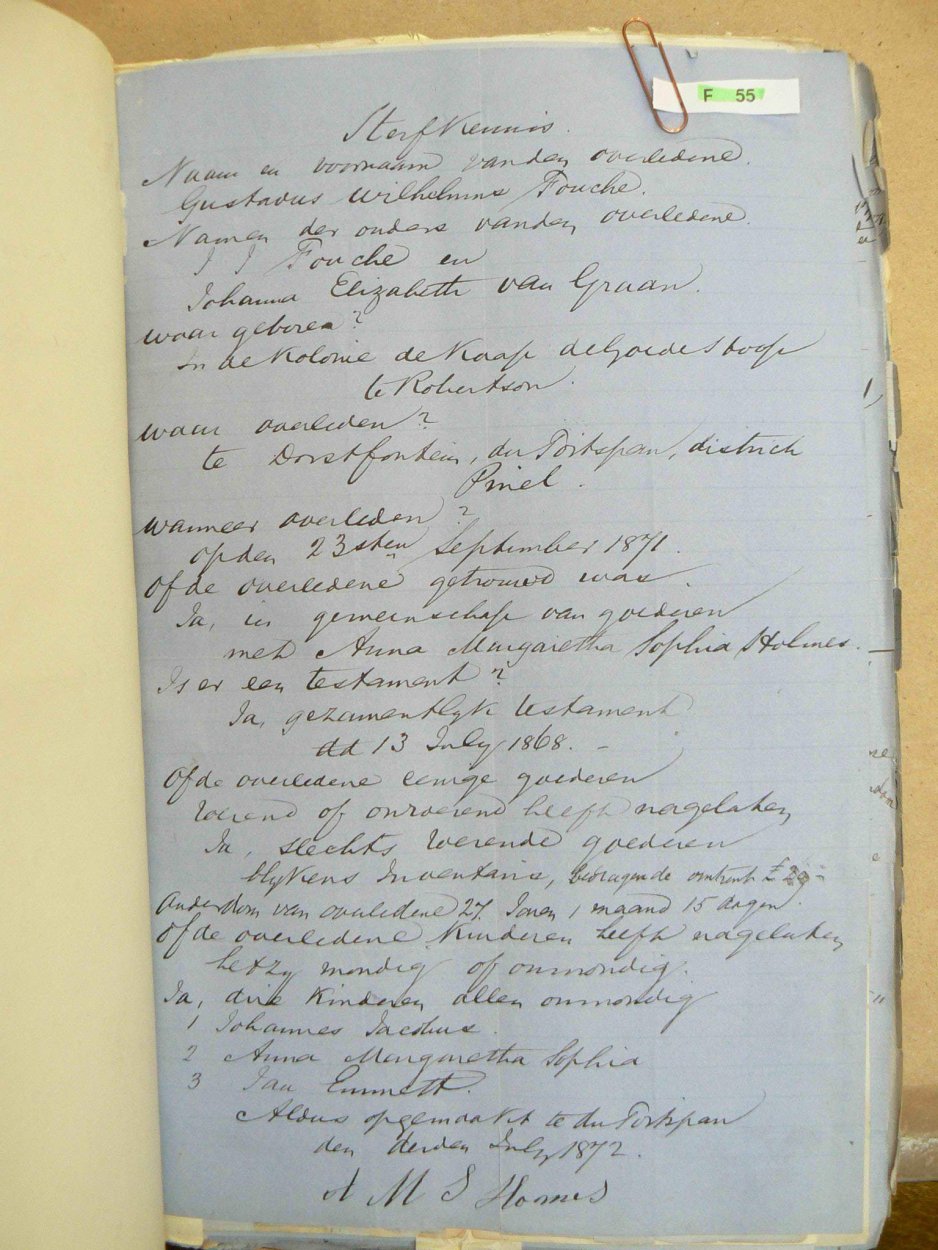 F 55
Sterfkennis.
Naam en voornaam van den overledene.
Gustavus Wilhelmus Fouche.
Namen der ouders van den overledene
J J Fouche en
Johanna Elizabeth van Graan.
waar geboren?
In de Kolonie de Kaap de Goede Hoop
te Robertson.
waar overleden?
te Dorstfontein, du Toitspan, district
Pniel.
wanneer overleden?
op den 23sten September 1871.
Of de overledene getrouwd was.
Ja, in gemeenschap van goederen
met Anna Margaretha Sophia Holmes.
Is er een testament?
Ja, gezamentlyk testament
dd 13 July 1868. -
Of de overledene eenige goederen
roerend of onroerend heeft nagelaten
Ja, slechts roerende goederen
blykens Inventaris, bedragende omtrent £
Ouderdom van overledene 27 Jaren 1 maand 15 dagen.
Of de overledene Kinderen heeft nagelaten
hetzy mondig of onmondig.
Ja, drie Kinderen allen onmondig
1 Johannes Jacobus.
2 Anna Margaretha Sophia
3 Jan Emmett.
Aldus opgemaakt te du Toitspan
den derden July 1872.
A M S Homes